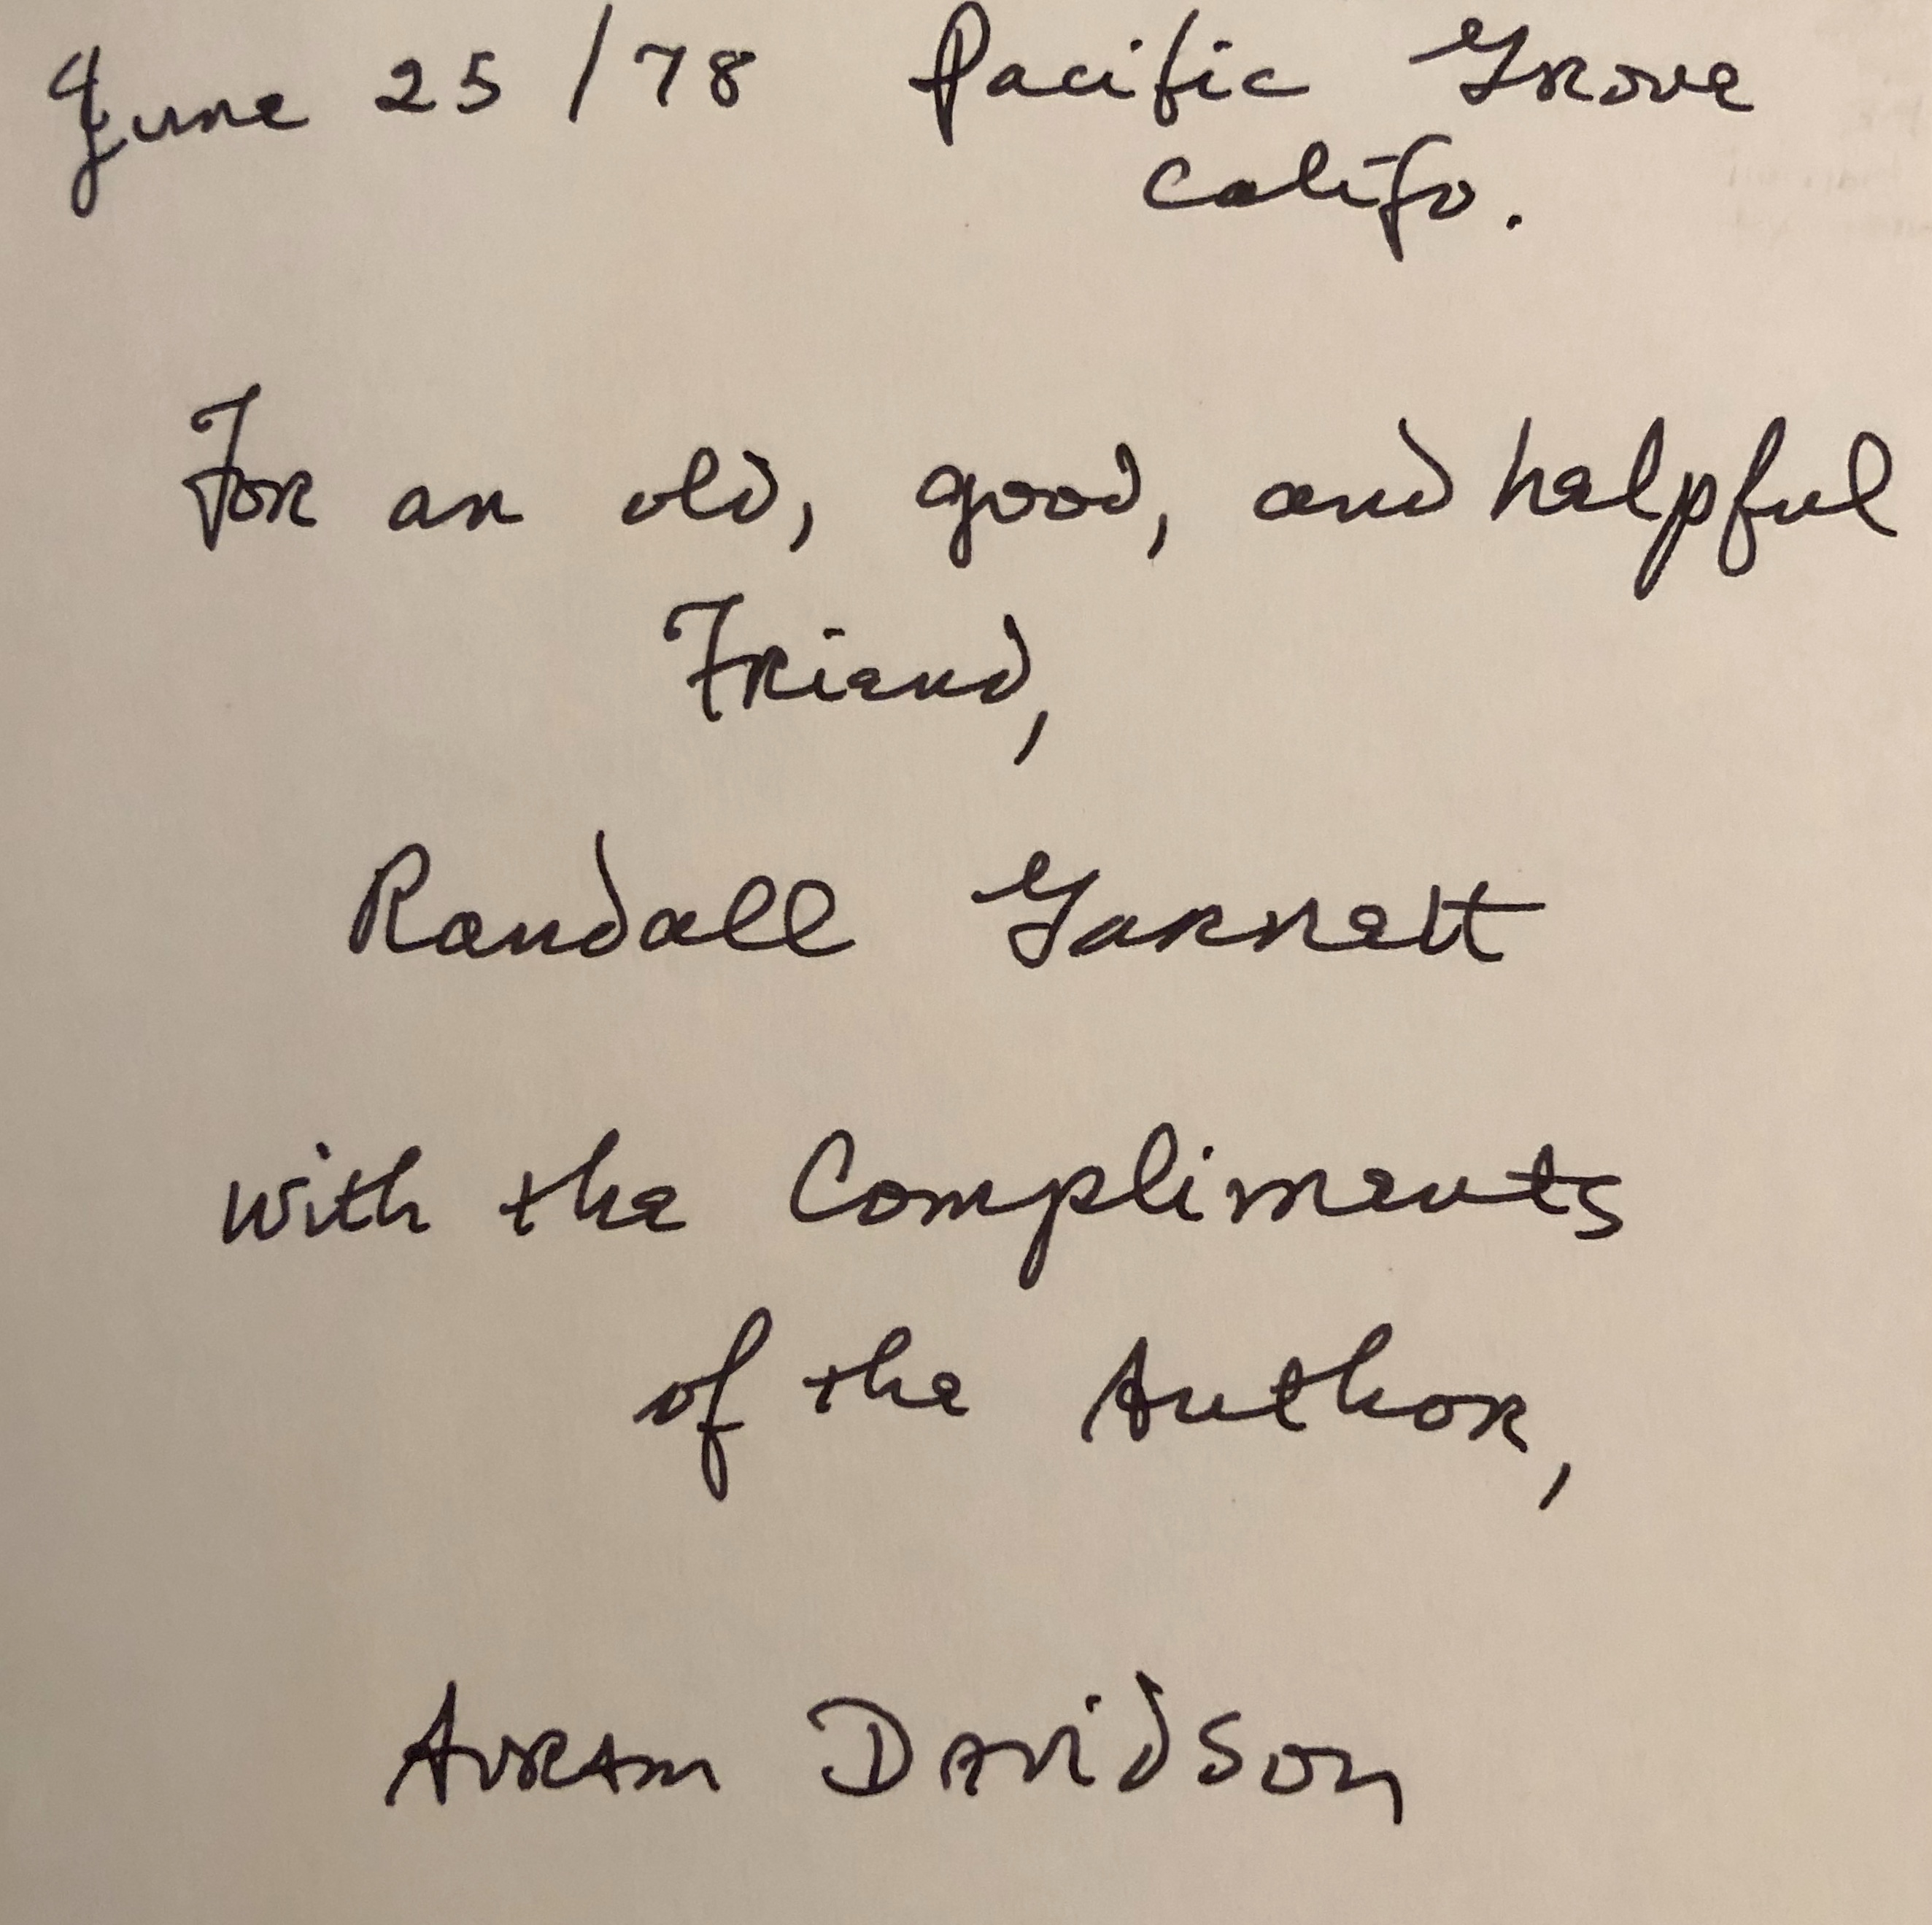 June 25 / 78 Pacific Grove
Califo.
For an old, good, and helpful
Friend,
Randall Garrett
with the Compliments
of the Author,
Avram Davidson